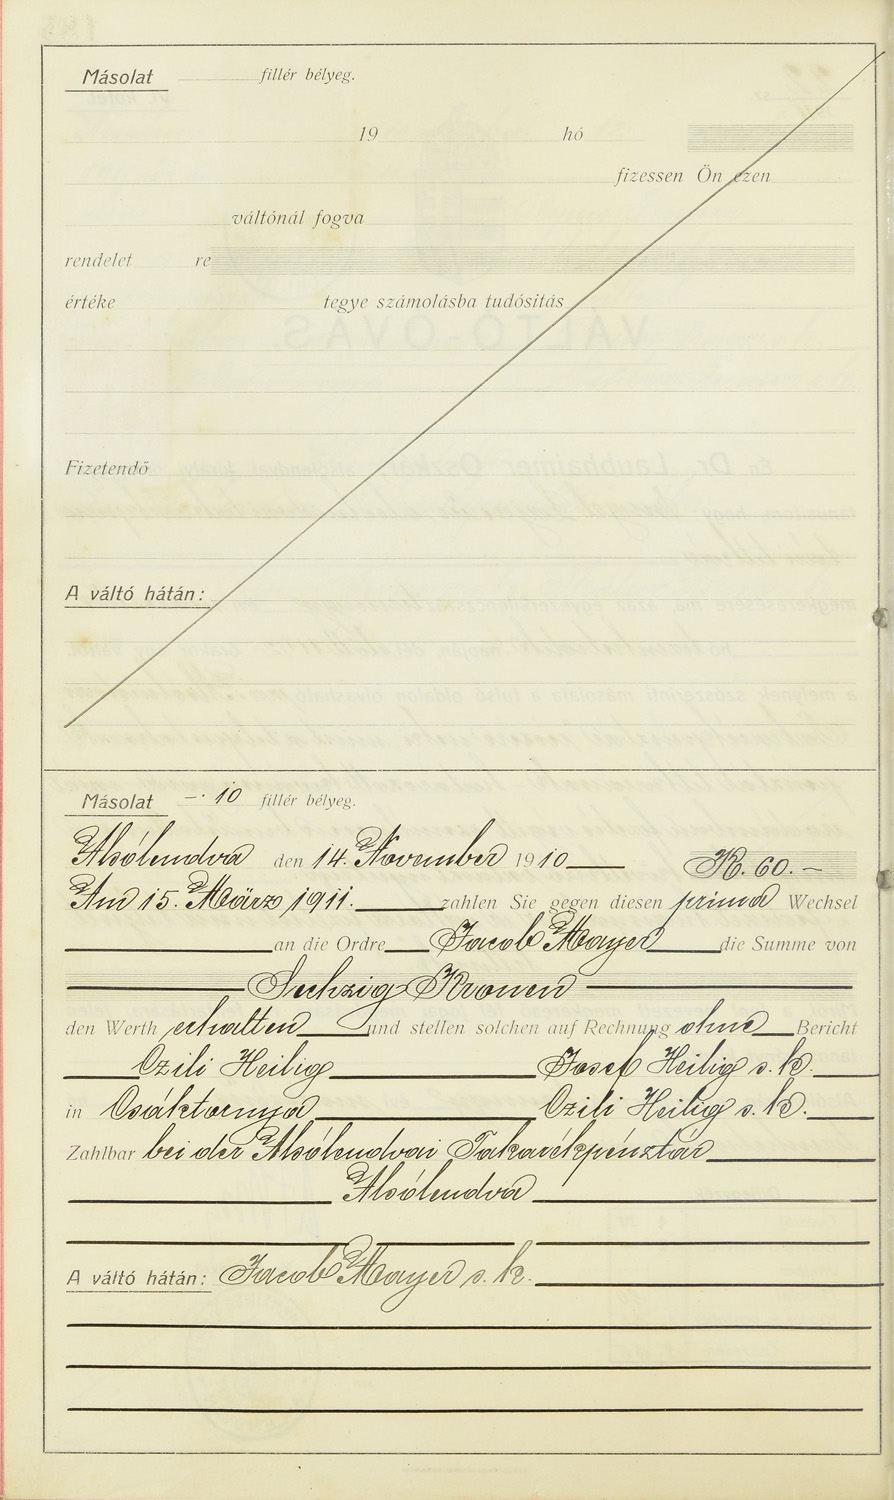 Másolat fillér bélyeg.
19 hó
fizessen Ön ezen
váltónál fogva
rendelet re
értéke tegye számolásba tudósitás
Fizetendő
A váltó hátán:
Másolat —·10 fillér bélyeg.
Alsólendva den 14. November 1910 K. 60.—
Am 15. März 1911. zahlen Sie gegen diesen prima Wechsel
an die Ordre Jacob Mayer die Summe von
Sechzig Kronen
den Werth erhalten und stellen solchen auf Rechnung ohne Bericht
Czili Heilig Josef Heilig s. k.
in Csáktornya Czili Heilig s. k.
Zahlbar bei der Alsólendvai Takarékpénztár
Alsólendva
A váltó hátán: Jacob Mayer s. k.